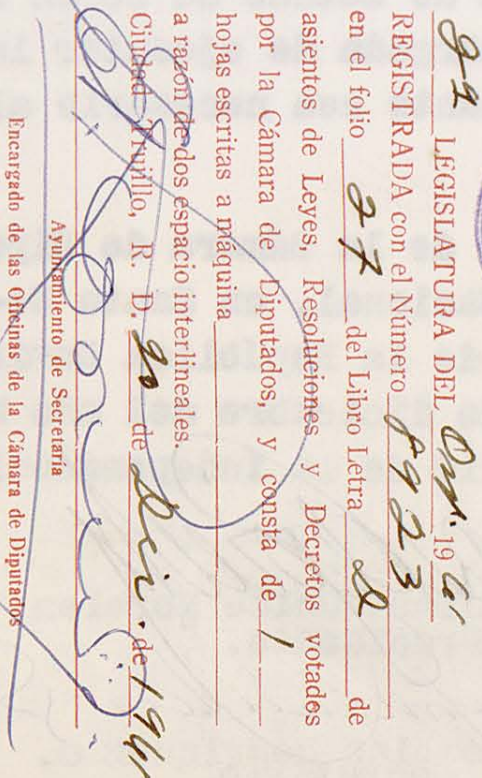 LEGISLATURA DEL Ord. 19 61
REGISTRADA con el Número 8923
en el folio 27 del Libro Letra D de
asientos de Leyes, Resoluciones y Decretos votados
por la Cámara de Diputados, y consta de 1
hojas escritas a máquina
a razón de dos espacio interlineales.
Ciudad Trujillo, R. D. 20 de Dic. de 1961
Ayudamiento de Secretaría
Encargado de las Oficinas de la Cámara de Diputados